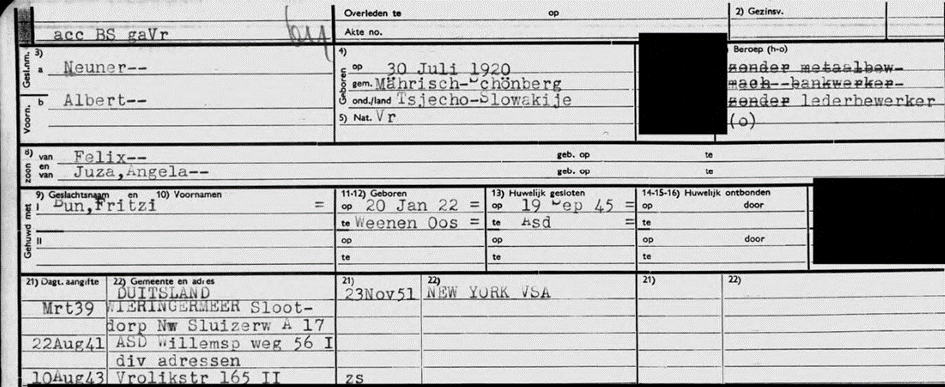 Overleden te op 2) Gezinsv.
acc BS gaVr Akte no.
Gesl.nm. 3) 4) Beroep (h-o)
a Neuner-- Geboren op 30 Juli 1920 zonder metaalbew-
gem. Mährisch-Schönberg mach--bankwerker-
Voorn. b Albert-- ond./land Tsjecho-Slowakije zonder lederbewerker
5) Nat. Vr (o)
zoon d) van Felix-- geb. op te
en van Juza,Angela-- geb. op te
Gehuwd met 9) Geslachtsnaam en 10) Voornamen 11-12) Geboren 13) Huwelijk gesloten 14-15-16) Huwelijk ontbonden
I Fritzi = op 20 Jan 22 = op 19 Sep 45 = op door
te Weenen Oos = te Asd = te
II op op op door
te te te
21) Dagt. aangifte 22) Gemeente en adres 21) 22) 21) 22)
DUITSLAND 23Nov51 NEW YORK VSA
Mrt39 WIERINGERMEER Sloot-
dorp Nw Sluizerw A 17
22Aug41 ASD Willemsp weg 56 I
div adressen
10Aug43 Vrolikstr 165 II zs